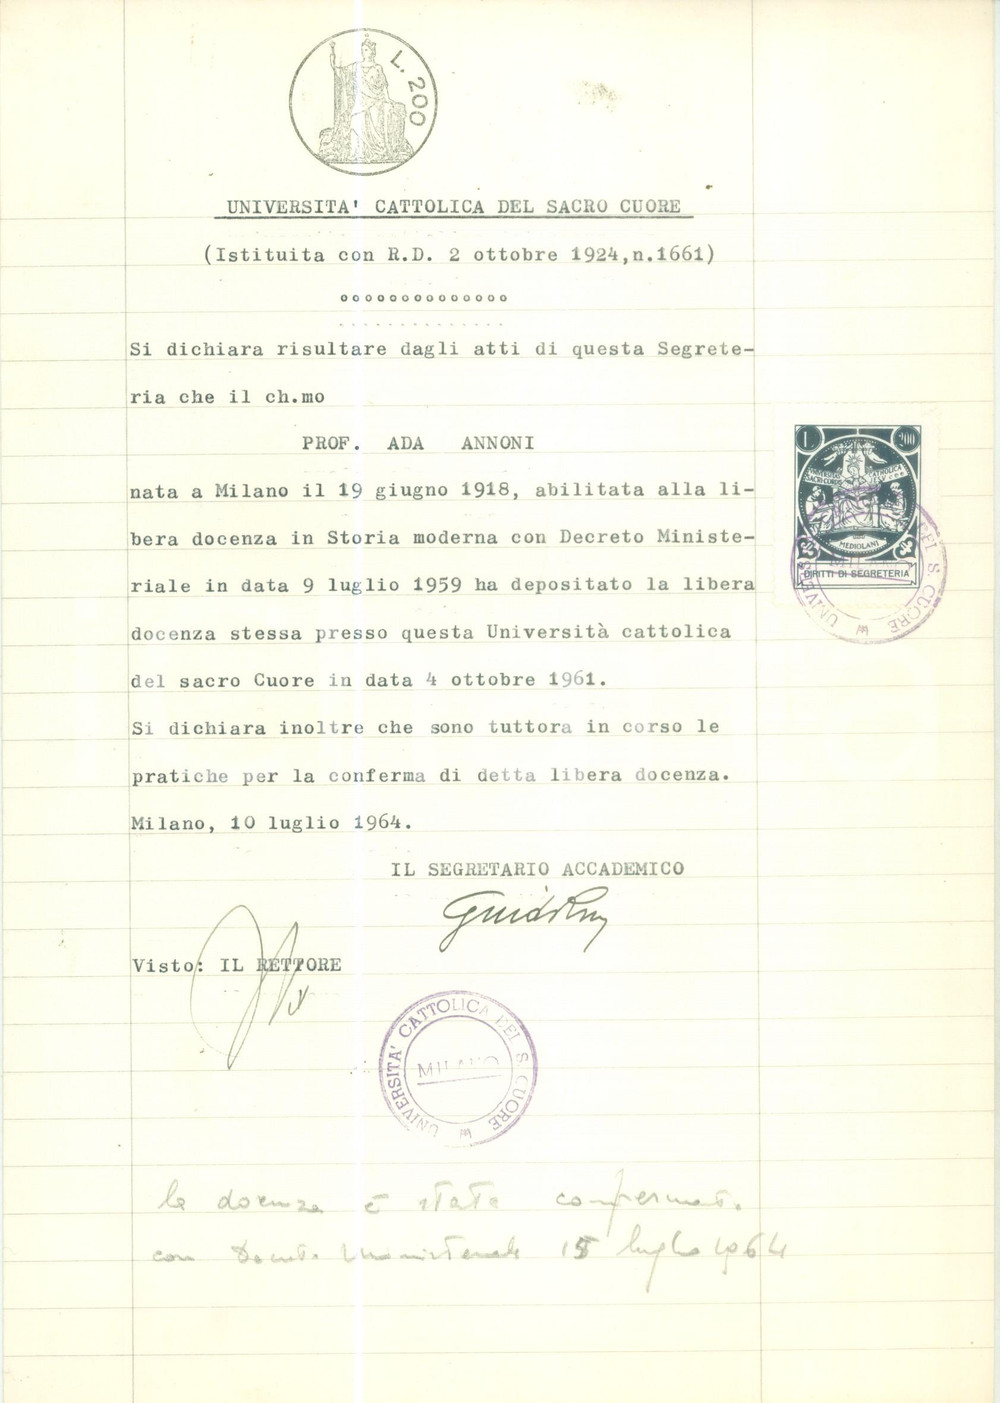 L. 200
UNIVERSITA' CATTOLICA DEL SACRO CUORE
(Istituita con R.D. 2 ottobre 1924,n.1661)
oooooooooooooo
Si dichiara risultare dagli atti di questa Segrete-
ria che il ch.mo
PROF. ADA ANNONI
nata a Milano il 19 giugno 1918, abilitata alla li-
bera docenza in Storia moderna con Decreto Ministe-
riale in data 9 luglio 1959 ha depositato la libera
docenza stessa presso questa Università cattolica
del sacro Cuore in data 4 ottobre 1961.
Si dichiara inoltre che sono tuttora in corso le
pratiche per la conferma di detta libera docenza.
Milano, 10 luglio 1964.
L 200
MEDIOLANI
DIRITTI DI SEGRETERIA
MILANO
IL SEGRETARIO ACCADEMICO
Visto: IL RETTORE
UNIVERSITA' CATTOLICA DEL S. CUORE
MILANO
la docenza è stata confermata
con Decreto Ministeriale 15 luglio 1964